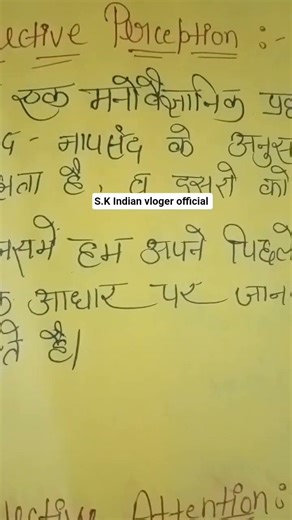 ective Perception :-
एक मनोवैज्ञानिक प्र
द - नापसंद के अनुस
ता है, व दूसरो को
S.K Indian vloger official
समें हम अपने पिछले
के आधार पर जान
ते है।
lective Attention :